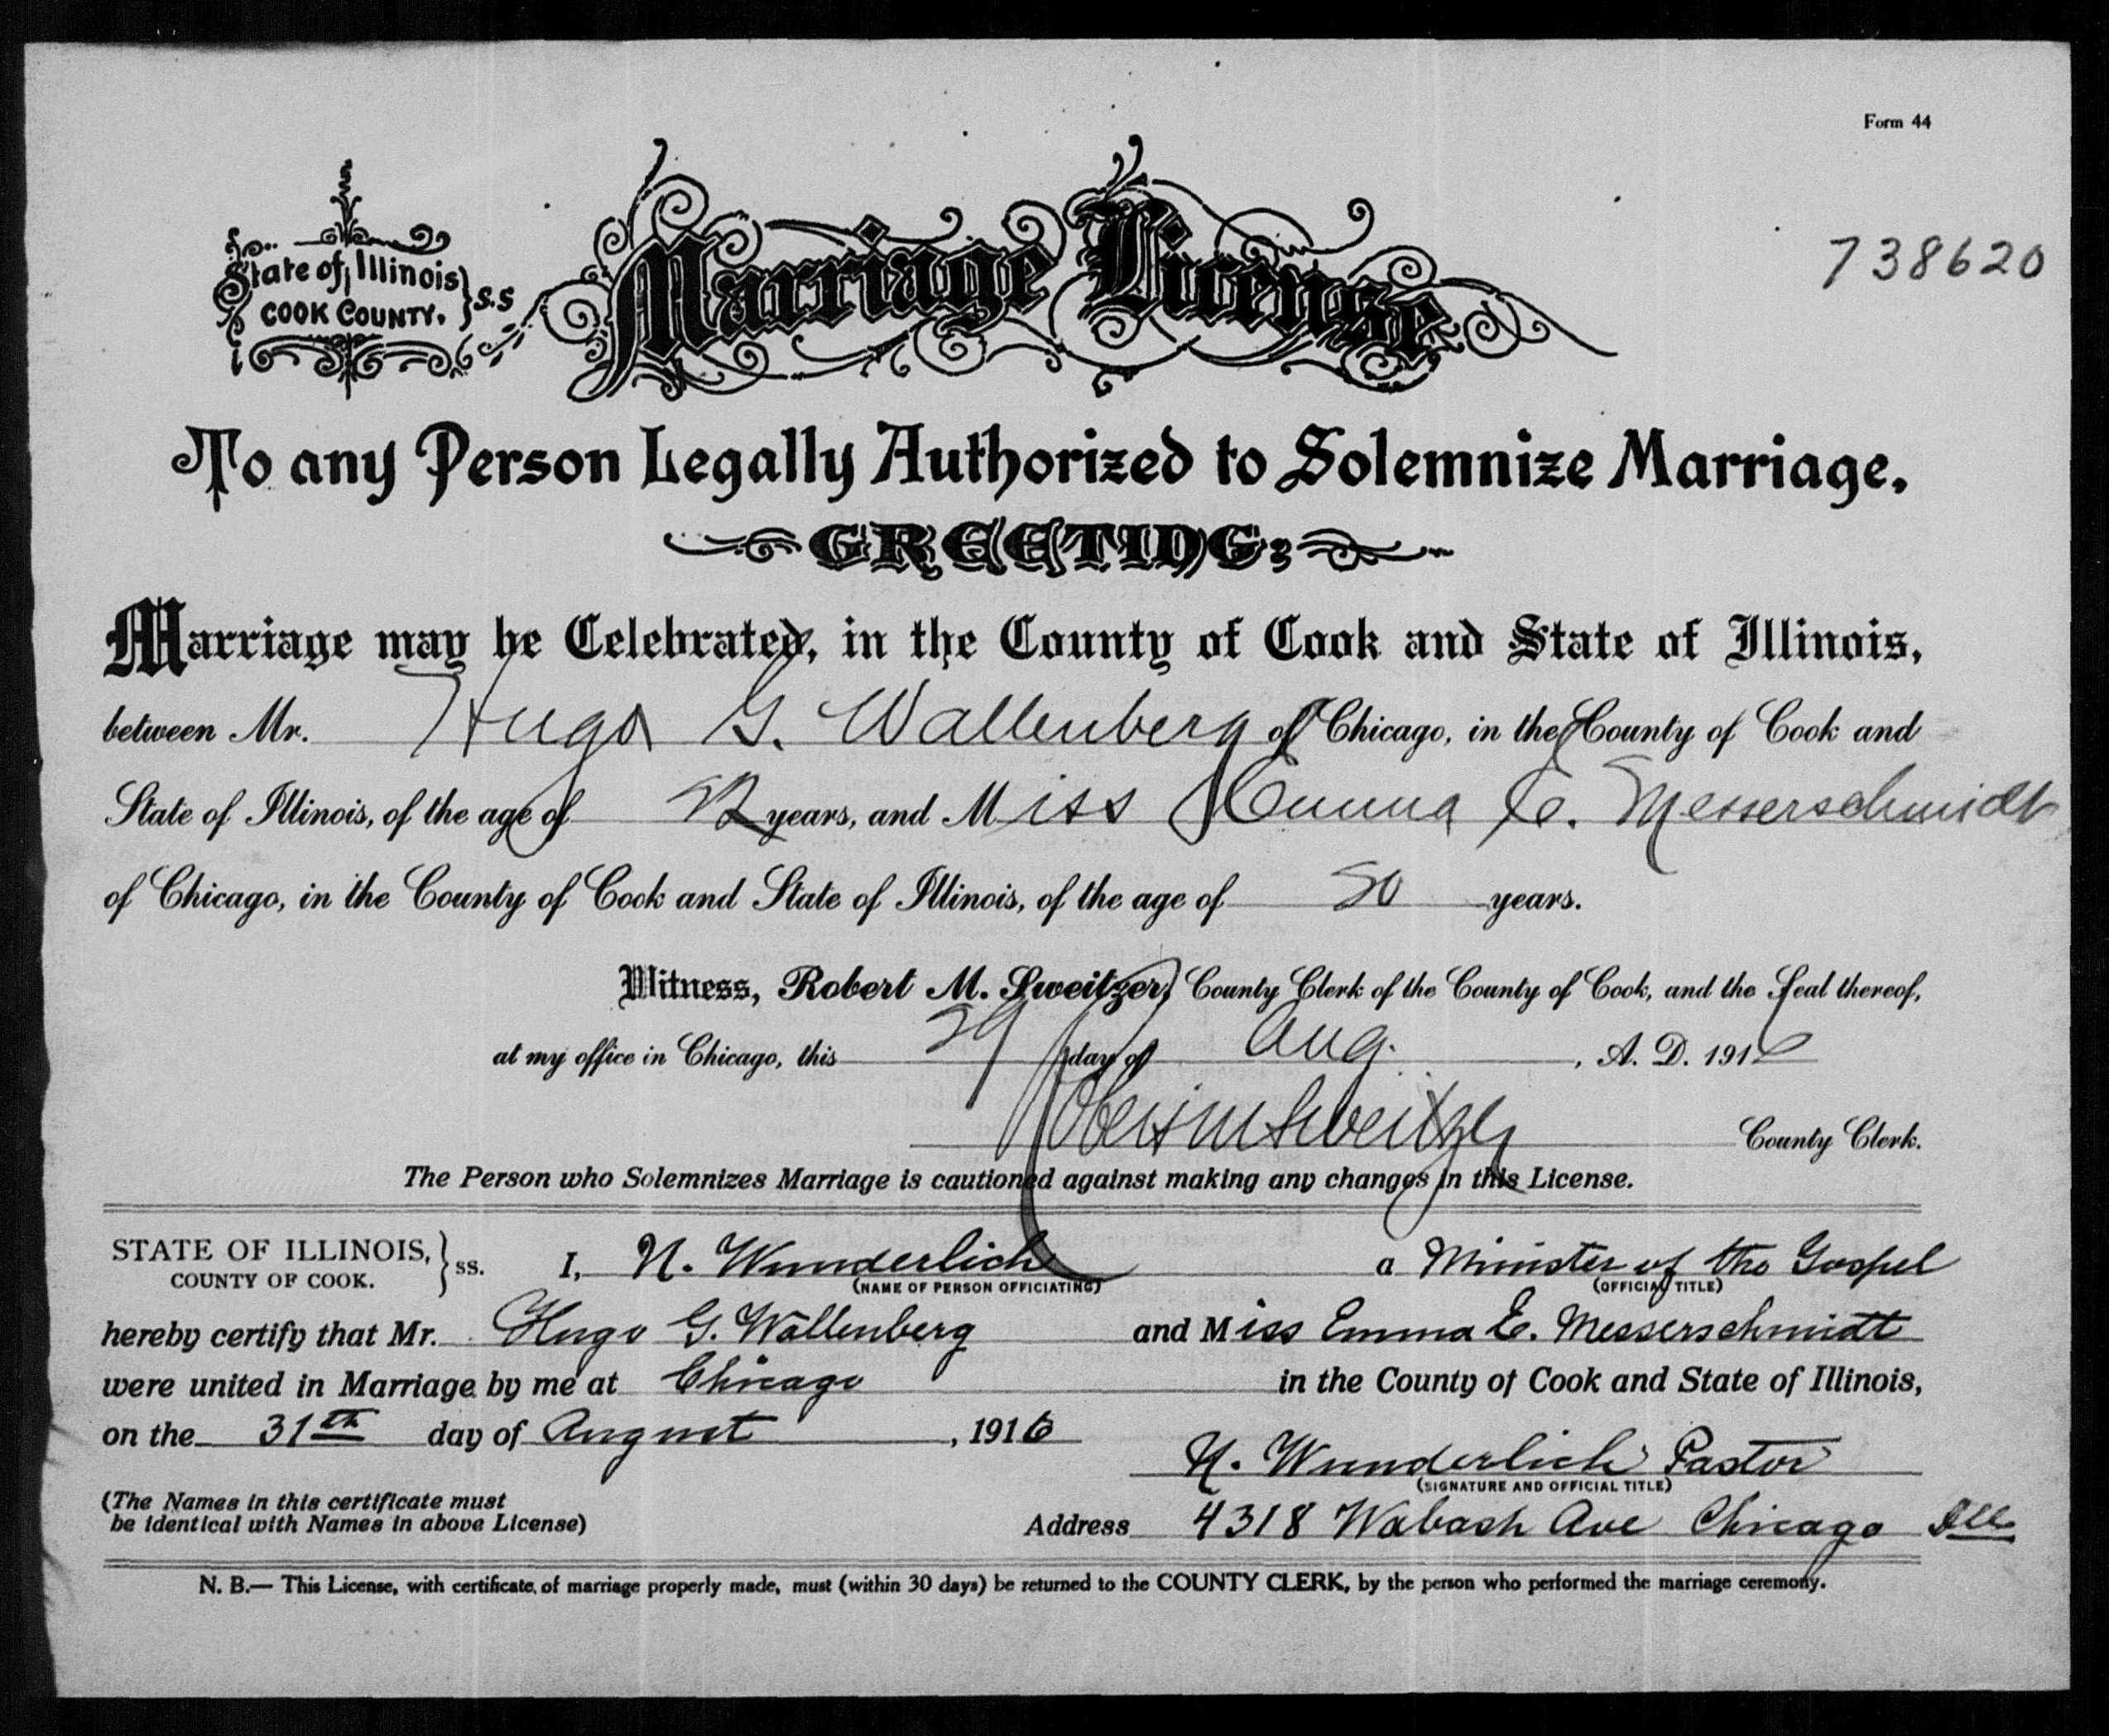 Form 44
State of Illinois
COOK COUNTY. } S.S
Marriage License
738620
To any Person Legally Authorized to Solemnize Marriage,
GREETING:
Marriage may be Celebrated, in the County of Cook and State of Illinois,
between Mr. Hugo G. Wallenberg of Chicago, in the County of Cook and
State of Illinois, of the age of years, and Miss Emma E. Messerschmidt
of Chicago, in the County of Cook and State of Illinois, of the age of years.
Witness, Robert M. Sweitzer, County Clerk of the County of Cook, and the Seal thereof,
at my office in Chicago, this 29 day of Aug. , A. D. 1916
Robert M Sweitzer County Clerk.
The Person who Solemnizes Marriage is cautioned against making any changes in this License.
STATE OF ILLINOIS,
COUNTY OF COOK. } ss. I, N. Wunderlich a Minister of the Gospel
(NAME OF PERSON OFFICIATING) (OFFICIAL TITLE)
hereby certify that Mr. Hugo G. Wallenberg and Miss Emma E. Messerschmidt
were united in Marriage by me at Chicago in the County of Cook and State of Illinois,
on the 31th day of August , 1916
N. Wunderlich Pastor
(SIGNATURE AND OFFICIAL TITLE)
(The Names in this certificate must
be identical with Names in above License)
Address 4318 Wabash Ave Chicago Ill
N. B.— This License, with certificate of marriage properly made, must (within 30 days) be returned to the COUNTY CLERK, by the person who performed the marriage ceremony.